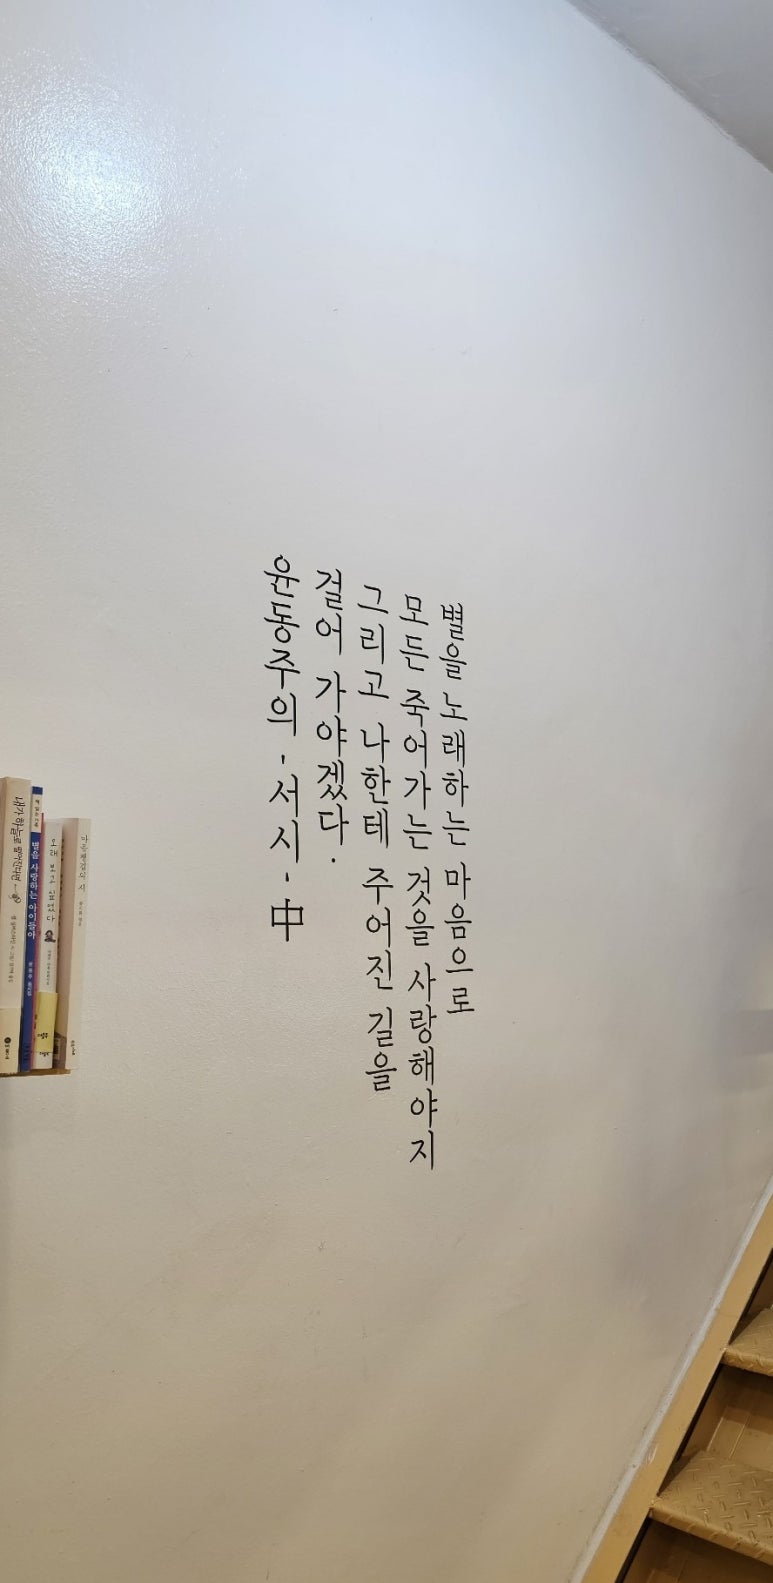 별을 노래하는 마음으로
모든 죽어가는 것을 사랑해야지
그리고 나한테 주어진 길을
걸어 가야겠다.
윤동주의 - 서시 - 中
내가 하늘로 떨어진다면
별을 사랑하는 아이들아
오래 보고 싶었다